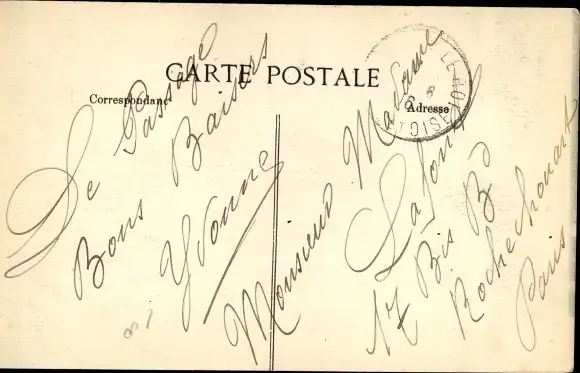 CARTE POSTALE
Correspondance
Adresse
De Passage
Bons Baisers
Yvonne
Monsieur Madame
Lafont
17 Bis Bd
Rochechouart
Paris